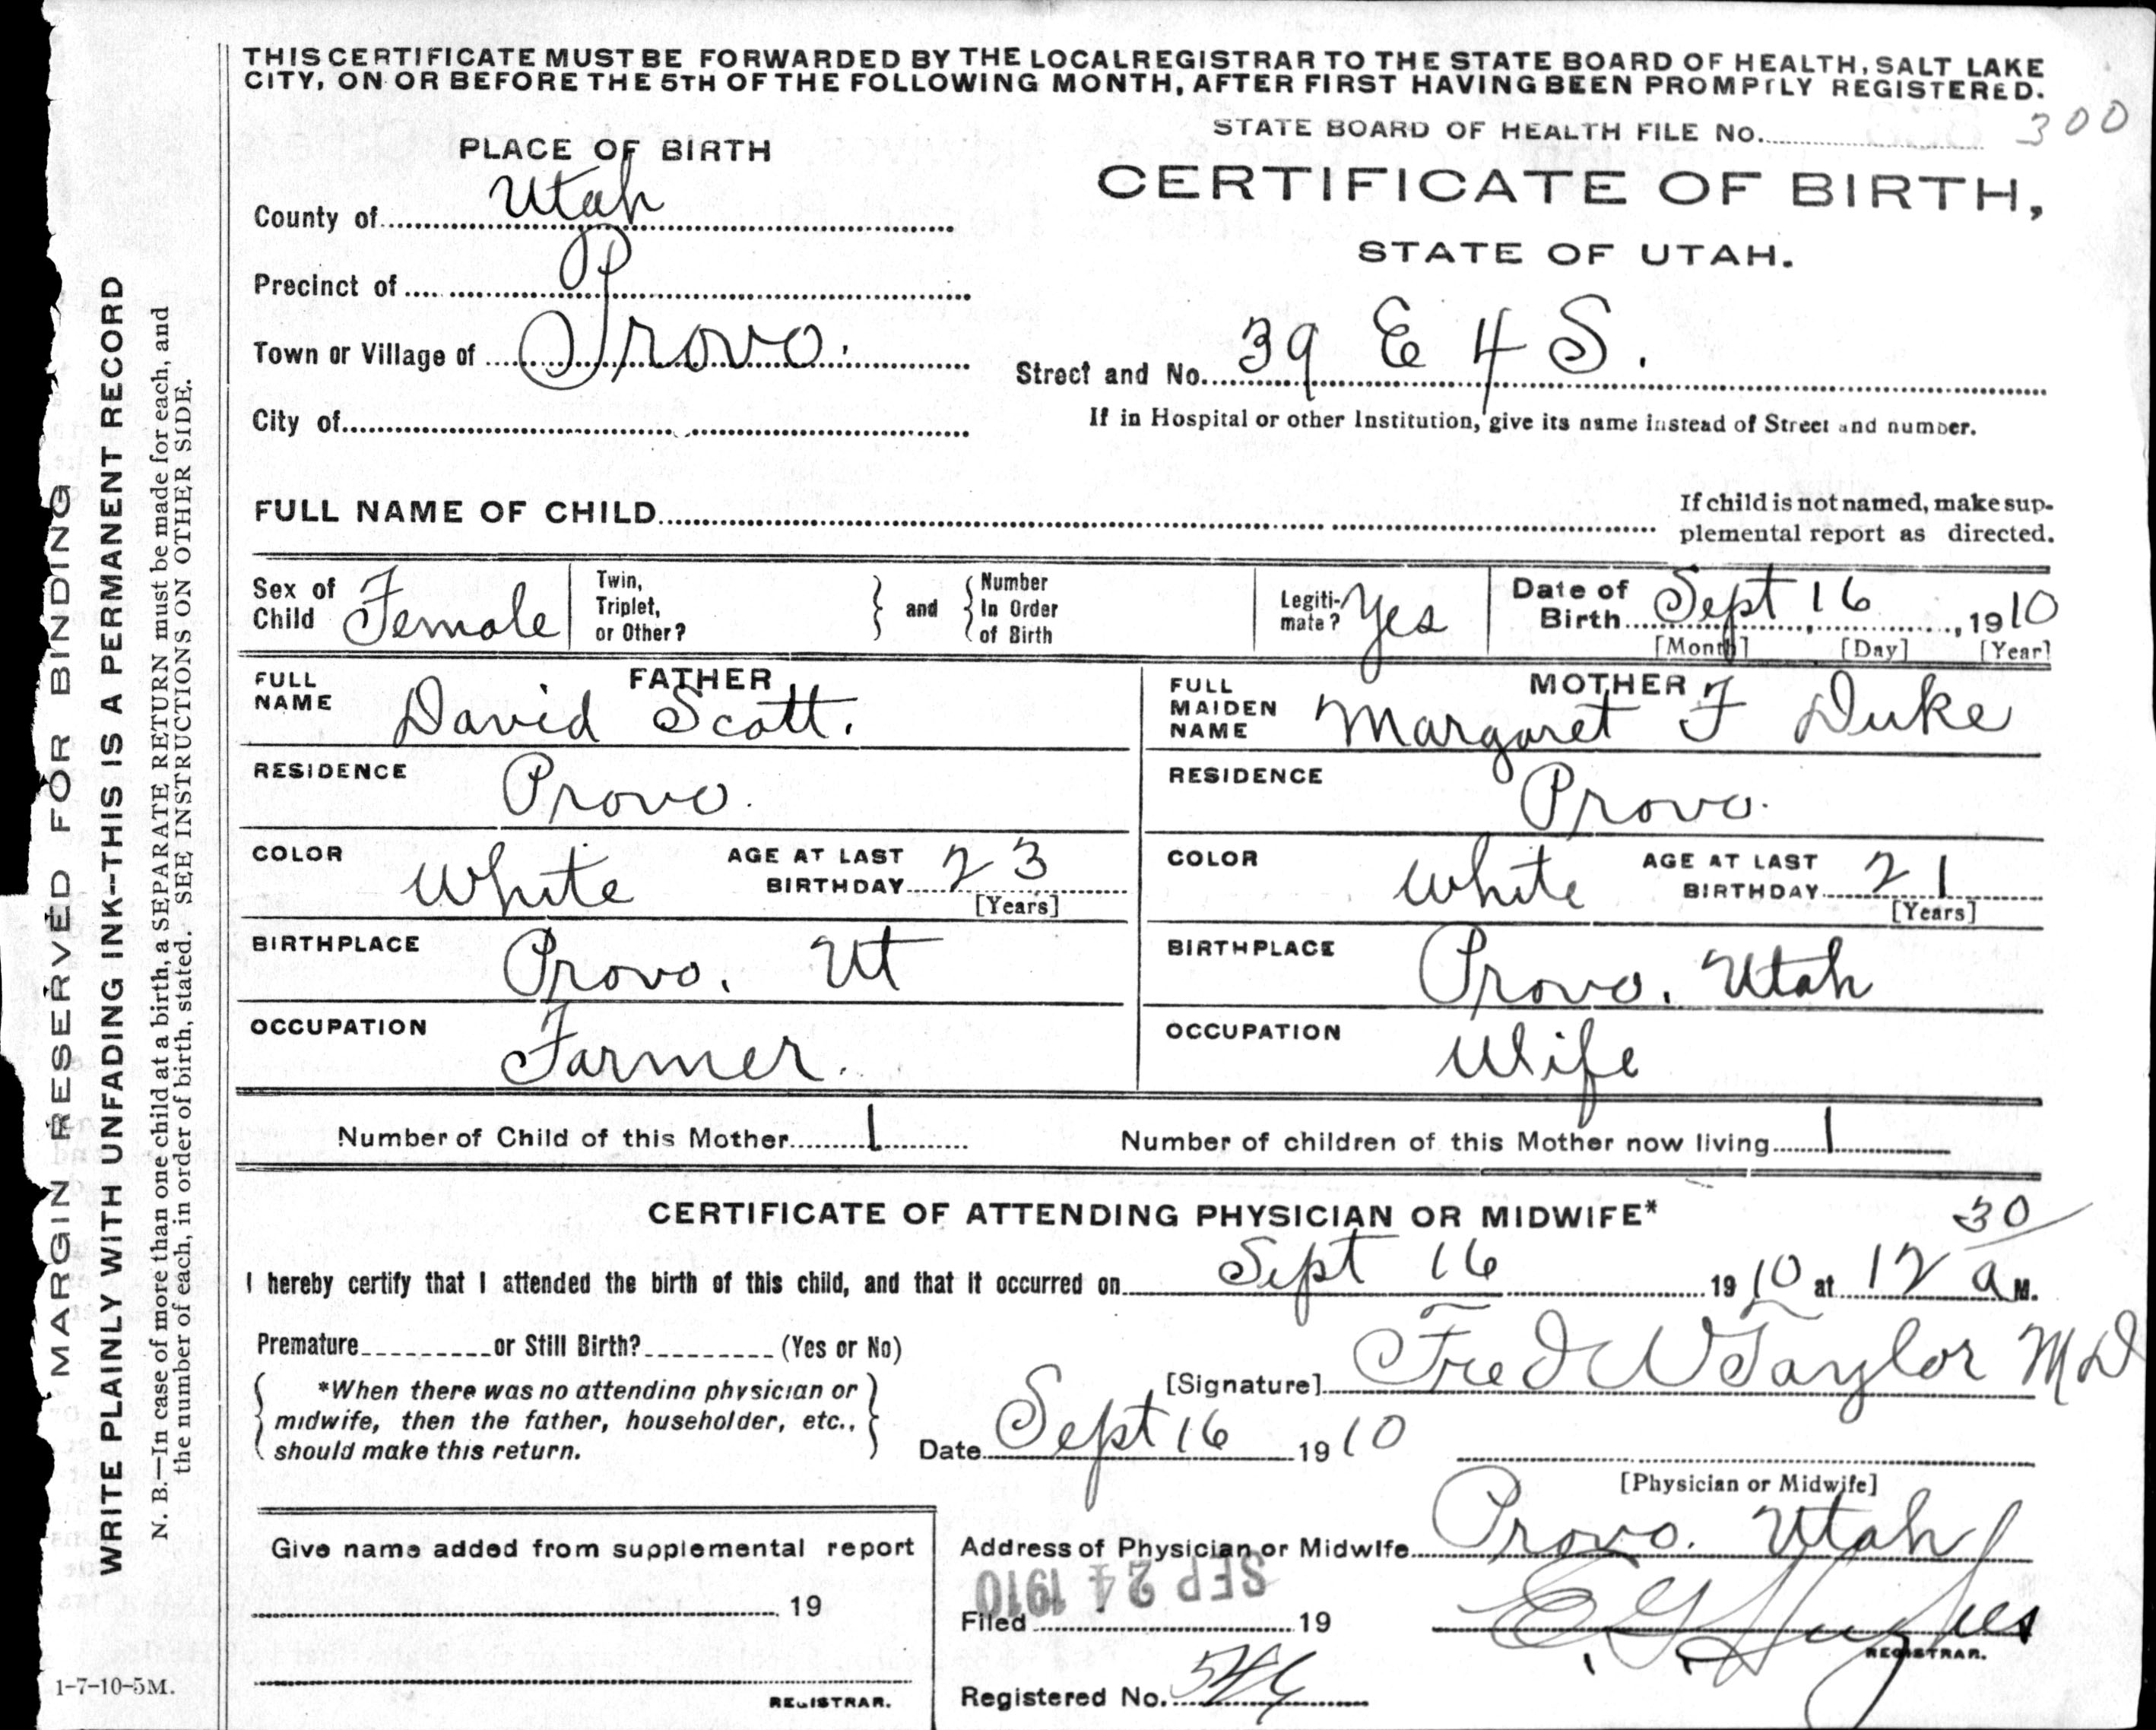 THIS CERTIFICATE MUST BE FORWARDED BY THE LOCAL REGISTRAR TO THE STATE BOARD OF HEALTH, SALT LAKE
CITY, ON OR BEFORE THE 5TH OF THE FOLLOWING MONTH, AFTER FIRST HAVING BEEN PROMPTLY REGISTERED.
STATE BOARD OF HEALTH FILE No. 300
PLACE OF BIRTH
CERTIFICATE OF BIRTH,
STATE OF UTAH.
County of Utah
Precinct of P
Town or Village of Provo.
Street and No. 39 E 4 S.
City of
If in Hospital or other Institution, give its name instead of Street and number.
FULL NAME OF CHILD
If child is not named, make sup-
plemental report as directed.
Sex of Child Female
Twin, Triplet, or Other?
and
Number In Order of Birth
Legiti-mate? Yes
Date of Birth Sept 16, 1910
[Month] [Day] [Year]
FATHER
FULL NAME David Scott.
RESIDENCE Provo.
COLOR White AGE AT LAST BIRTHDAY 23
[Years]
BIRTHPLACE Provo. Ut
OCCUPATION Farmer.
MOTHER
FULL MAIDEN NAME Margaret F Duke
RESIDENCE Provo.
COLOR White AGE AT LAST BIRTHDAY 21
[Years]
BIRTHPLACE Provo. Utah
OCCUPATION Wife
Number of Child of this Mother 1
Number of children of this Mother now living 1
CERTIFICATE OF ATTENDING PHYSICIAN OR MIDWIFE*
I hereby certify that I attended the birth of this child, and that it occurred on Sept 16 1910 at 12 30 a M.
Premature or Still Birth? (Yes or No)
[Signature] Fred W Taylor MD
*When there was no attending physician or
midwife, then the father, householder, etc.,
should make this return.
Date Sept 16 1910
[Physician or Midwife]
Give name added from supplemental report
19
REGISTRAR.
Address of Physician or Midwife Provo. Utah
SEP 24 1910
Filed 19
E G Hughes
REGISTRAR.
Registered No.
MARGIN RESERVED FOR BINDING
WRITE PLAINLY WITH UNFADING INK--THIS IS A PERMANENT RECORD
N. B.—In case of more than one child at a birth, a SEPARATE RETURN must be made for each, and
the number of each, in order of birth, stated. SEE INSTRUCTIONS ON OTHER SIDE.
1-7-10-5M.